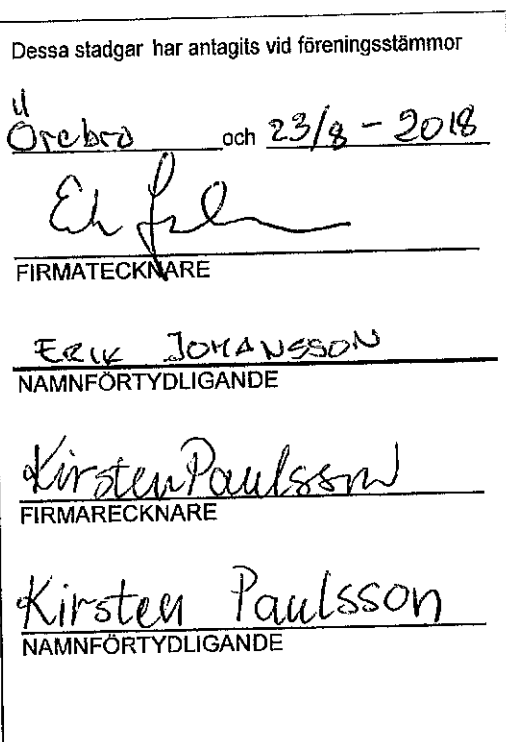 Dessa stadgar har antagits vid föreningsstämmor
Örebro och 23/8 - 2018
FIRMATECKNARE
ERIK JOHANSSON
NAMNFÖRTYDLIGANDE
Kirsten Paulsson
FIRMARECKNARE
Kirsten Paulsson
NAMNFÖRTYDLIGANDE